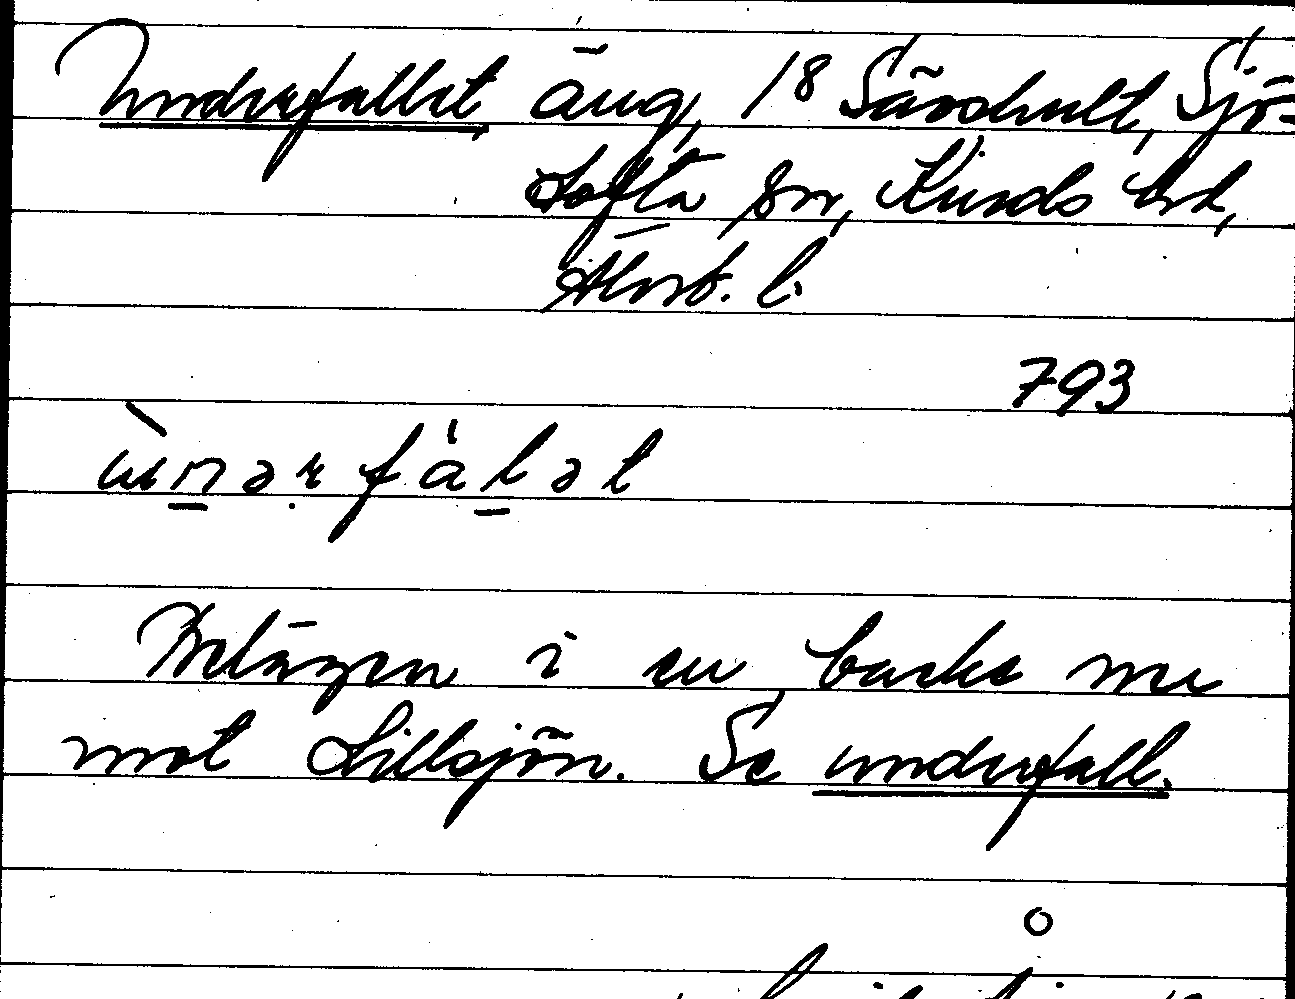 Underfallet, äng, 18 Sävshult, Sjö-
tofta sn, Kinds hd,
Älvsb. l.
793
ùn̲ərfàl̲ət
Belägen i en backe ner
mot Lillsjön. Se underfall.